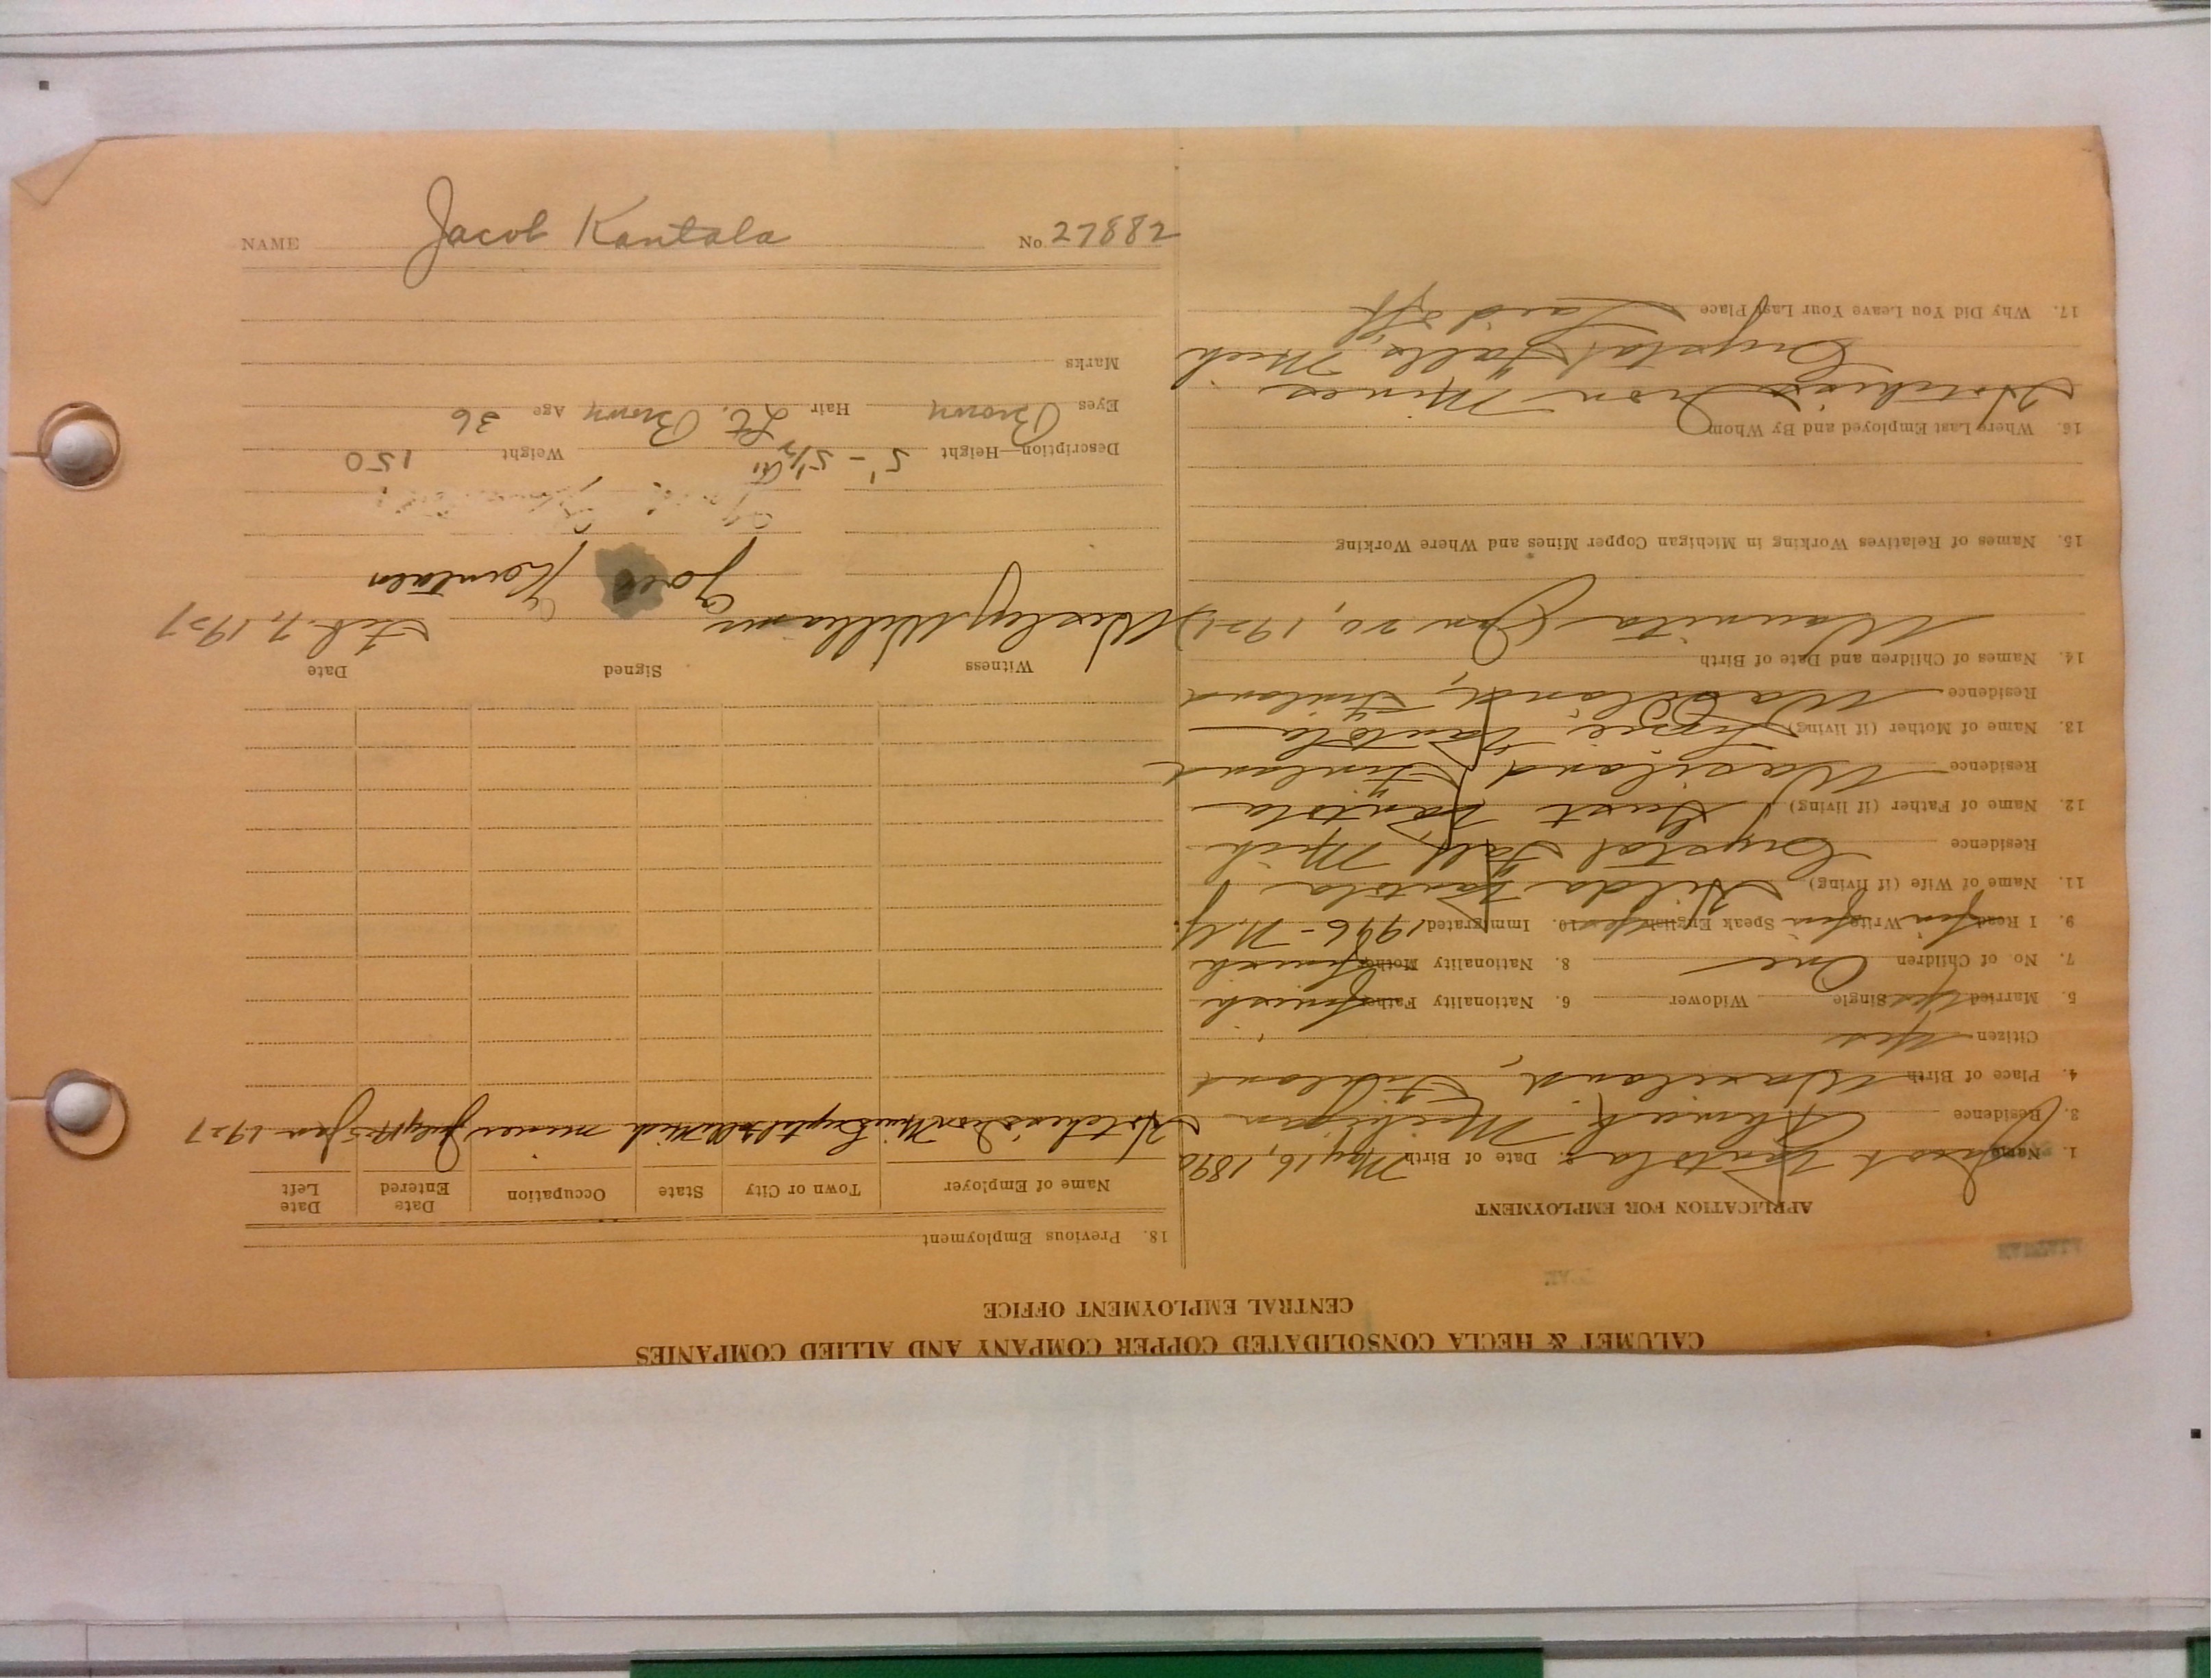 CALUMET & HECLA CONSOLIDATED COPPER COMPANY AND ALLIED COMPANIES
CENTRAL EMPLOYMENT OFFICE
APPLICATION FOR EMPLOYMENT
1. Name Jacob Kantola 2. Date of Birth May 16, 1890
3. Residence Ahmeek Michigan
4. Place of Birth Finland
Citizen Yes
5. Married Yes Single Widower 6. Nationality Father Finnish
7. No. of Children One 8. Nationality Mother Finnish
9. I Read Fin Write Fin Speak English Yes 10. Immigrated N.Y.
11. Name of Wife (if living) Hilda Kantola
Residence Crystal Falls Mich
12. Name of Father (if living) Kantola
Residence Finland
13. Name of Mother (if living) Kantola
Residence Finland
14. Names of Children and Date of Birth
(Jan 20, 1921)
15. Names of Relatives Working in Michigan Copper Mines and Where Working
16. Where Last Employed and By Whom
Iron Mines
Crystal Falls, Mich
17. Why Did You Leave Your Last Place Laid off
18. Previous Employment
Name of Employer Town or City State Occupation Date Entered Date Left
Iron Mine Crystal Falls Mich miner July Jan 1927
Witness Signed Date
Wesley Williams Feb. 7, 1927
Description—Height 5'-5½" Weight 150
Eyes Brown Hair Lt. Brown Age 36
Marks
NAME Jacob Kantala No. 27882